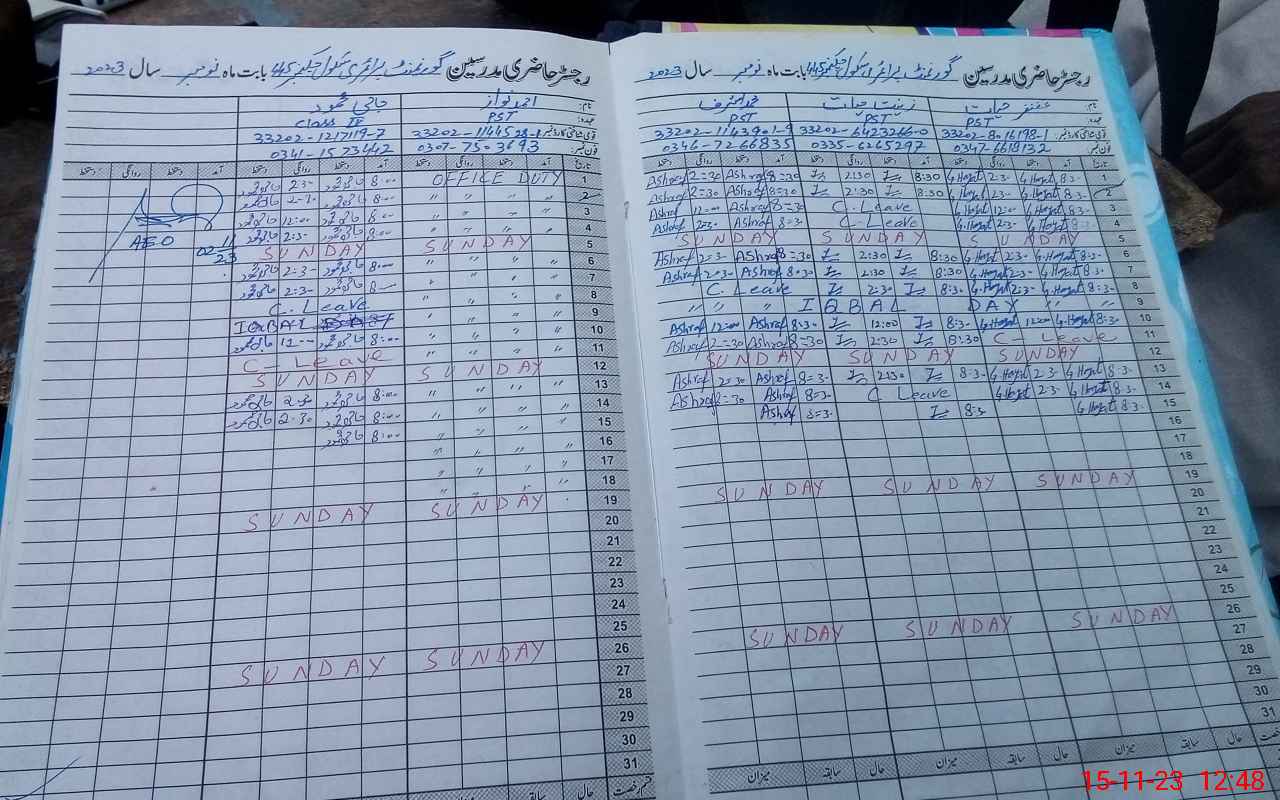 رجسٹر حاضری مدرسین گورنمنٹ پرائمری سکول 445 بابت ماہ نومبر سال 2023
نام: غضنفر حیات زینت حیات محمد اشرف
عہدہ: PST PST PST
قومی شناختی کارڈ نمبر: 33202-8016198-1 33202-6423266-0 33202-1143901-9
فون نمبر: 0347-6619132 0335-6265297 0346-7266835
تاریخ آمد دستخط روانگی دستخط آمد دستخط روانگی دستخط آمد دستخط روانگی دستخط
1 8:3- G.Hayat 2:3- G.Hayat 8:30 2:30 8=30 Ashraf 2=30 Ashraf
2 8:3- G.Hayat 2:3- G.Hayat 8:30 2:30 8=30 Ashraf 2=30 Ashraf
3 8:3- G.Hayat 12:00 G.Hayat C.Leave 8=3- Ashraf 12=00 Ashraf
4 8:3- G.Hayat 2:3- G.Hayat C.Leave 8=3- Ashraf 2=3- Ashraf
5 SUNDAY SUNDAY SUNDAY
6 8:3- G.Hayat 2:3- G.Hayat 8:30 2:30 8=30 Ashraf 2=3- Ashraf
7 8:3- G.Hayat 2:3- G.Hayat 8:30 2:30 8=30 Ashraf 2=3- Ashraf
8 8:3- G.Hayat 2:3- G.Hayat 8:30 2:30 C.Leave
9 " " IQBAL DAY " " "
10 8:3- G.Hayat 12:00 G.Hayat 8:3- 12:00 8=3- Ashraf 12=00 Ashraf
11 C-Leave 8:30 2:30 8=30 Ashraf 2=30 Ashraf
12 SUNDAY SUNDAY SUNDAY
13 8:3- G.Hayat 2:3- G.Hayat 8:3- 2:30 8=3- Ashraf 2=30 Ashraf
14 8:3- G.Hayat 2:3- G.Hayat C Leave 8=3- Ashraf 2=30 Ashraf
15 8:3- G.Hayat 8:3- 8=3- Ashraf
16
17
18
19 SUNDAY SUNDAY SUNDAY
20
21
22
23
24
25
26 SUNDAY SUNDAY SUNDAY
27
28
29
30
31
حال سابقہ میزان حال سابقہ میزان حال سابقہ میزان
رجسٹر حاضری مدرسین گورنمنٹ پرائمری سکول 445 بابت ماہ نومبر سال 2023
احمد نواز حاجی محمود
PST Class IV
33202-1144528-1 33202-1217119-7
0307-7503693 0341-1573442
آمد دستخط روانگی دستخط آمد دستخط روانگی دستخط آمد دستخط روانگی دستخط
1 OFFICE DUTY 8:00 حاجی محمود 2:3- حاجی محمود
2 " " " " 8:00 حاجی محمود 2:3- حاجی محمود
3 " " " " 8:00 حاجی محمود 12:00 حاجی محمود
4 " " " " 8:00 حاجی محمود 2:3- حاجی محمود
A.E.O
02-11
23
5 SUNDAY SUNDAY
6 " " " " 8:00 حاجی محمود 2:3- حاجی محمود
7 " " " " 8:00 حاجی محمود 2:3- حاجی محمود
8 " " " " C.Leave
9 " " " " IQBAL
10 " " " " 8:00 حاجی محمود 12:00 حاجی محمود
11 " " " " C-Leave
12 SUNDAY SUNDAY
13 " " " " 8:00 حاجی محمود 2:30 حاجی محمود
14 " " " " 8:00 حاجی محمود 2:30 حاجی محمود
15 " " " " 8:00 حاجی محمود
16 " " " "
17 " " " "
18 " " " "
19 SUNDAY SUNDAY
20
21
22
23
24
25
26 SUNDAY SUNDAY
27
28
29
30
31
قسم رخصت حال سابقہ میزان
15-11-23 12:48